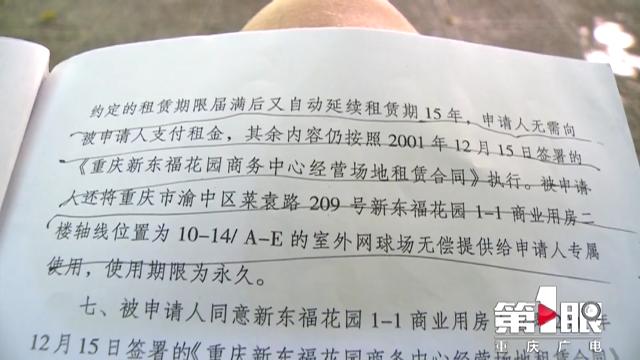 约定的租赁期限届满后又自动延续租赁期 15 年，申请人无需向
被申请人支付租金，其余内容仍按照 2001 年 12 月 15 日签署的
《重庆新东福花园商务中心经营场地租赁合同》执行。被申请
人还将重庆市渝中区菜袁路 209 号新东福花园 1-1 商业用房二
楼轴线位置为 10-14/ A-E 的室外网球场无偿提供给申请人专属
使用，使用期限为永久。
七、被申请人同意新东福花园 1-1 商业用房
年
12 月 15 日签署的《重庆新东福花园商务中心经营场地租赁合同
第1眼
重庆广电